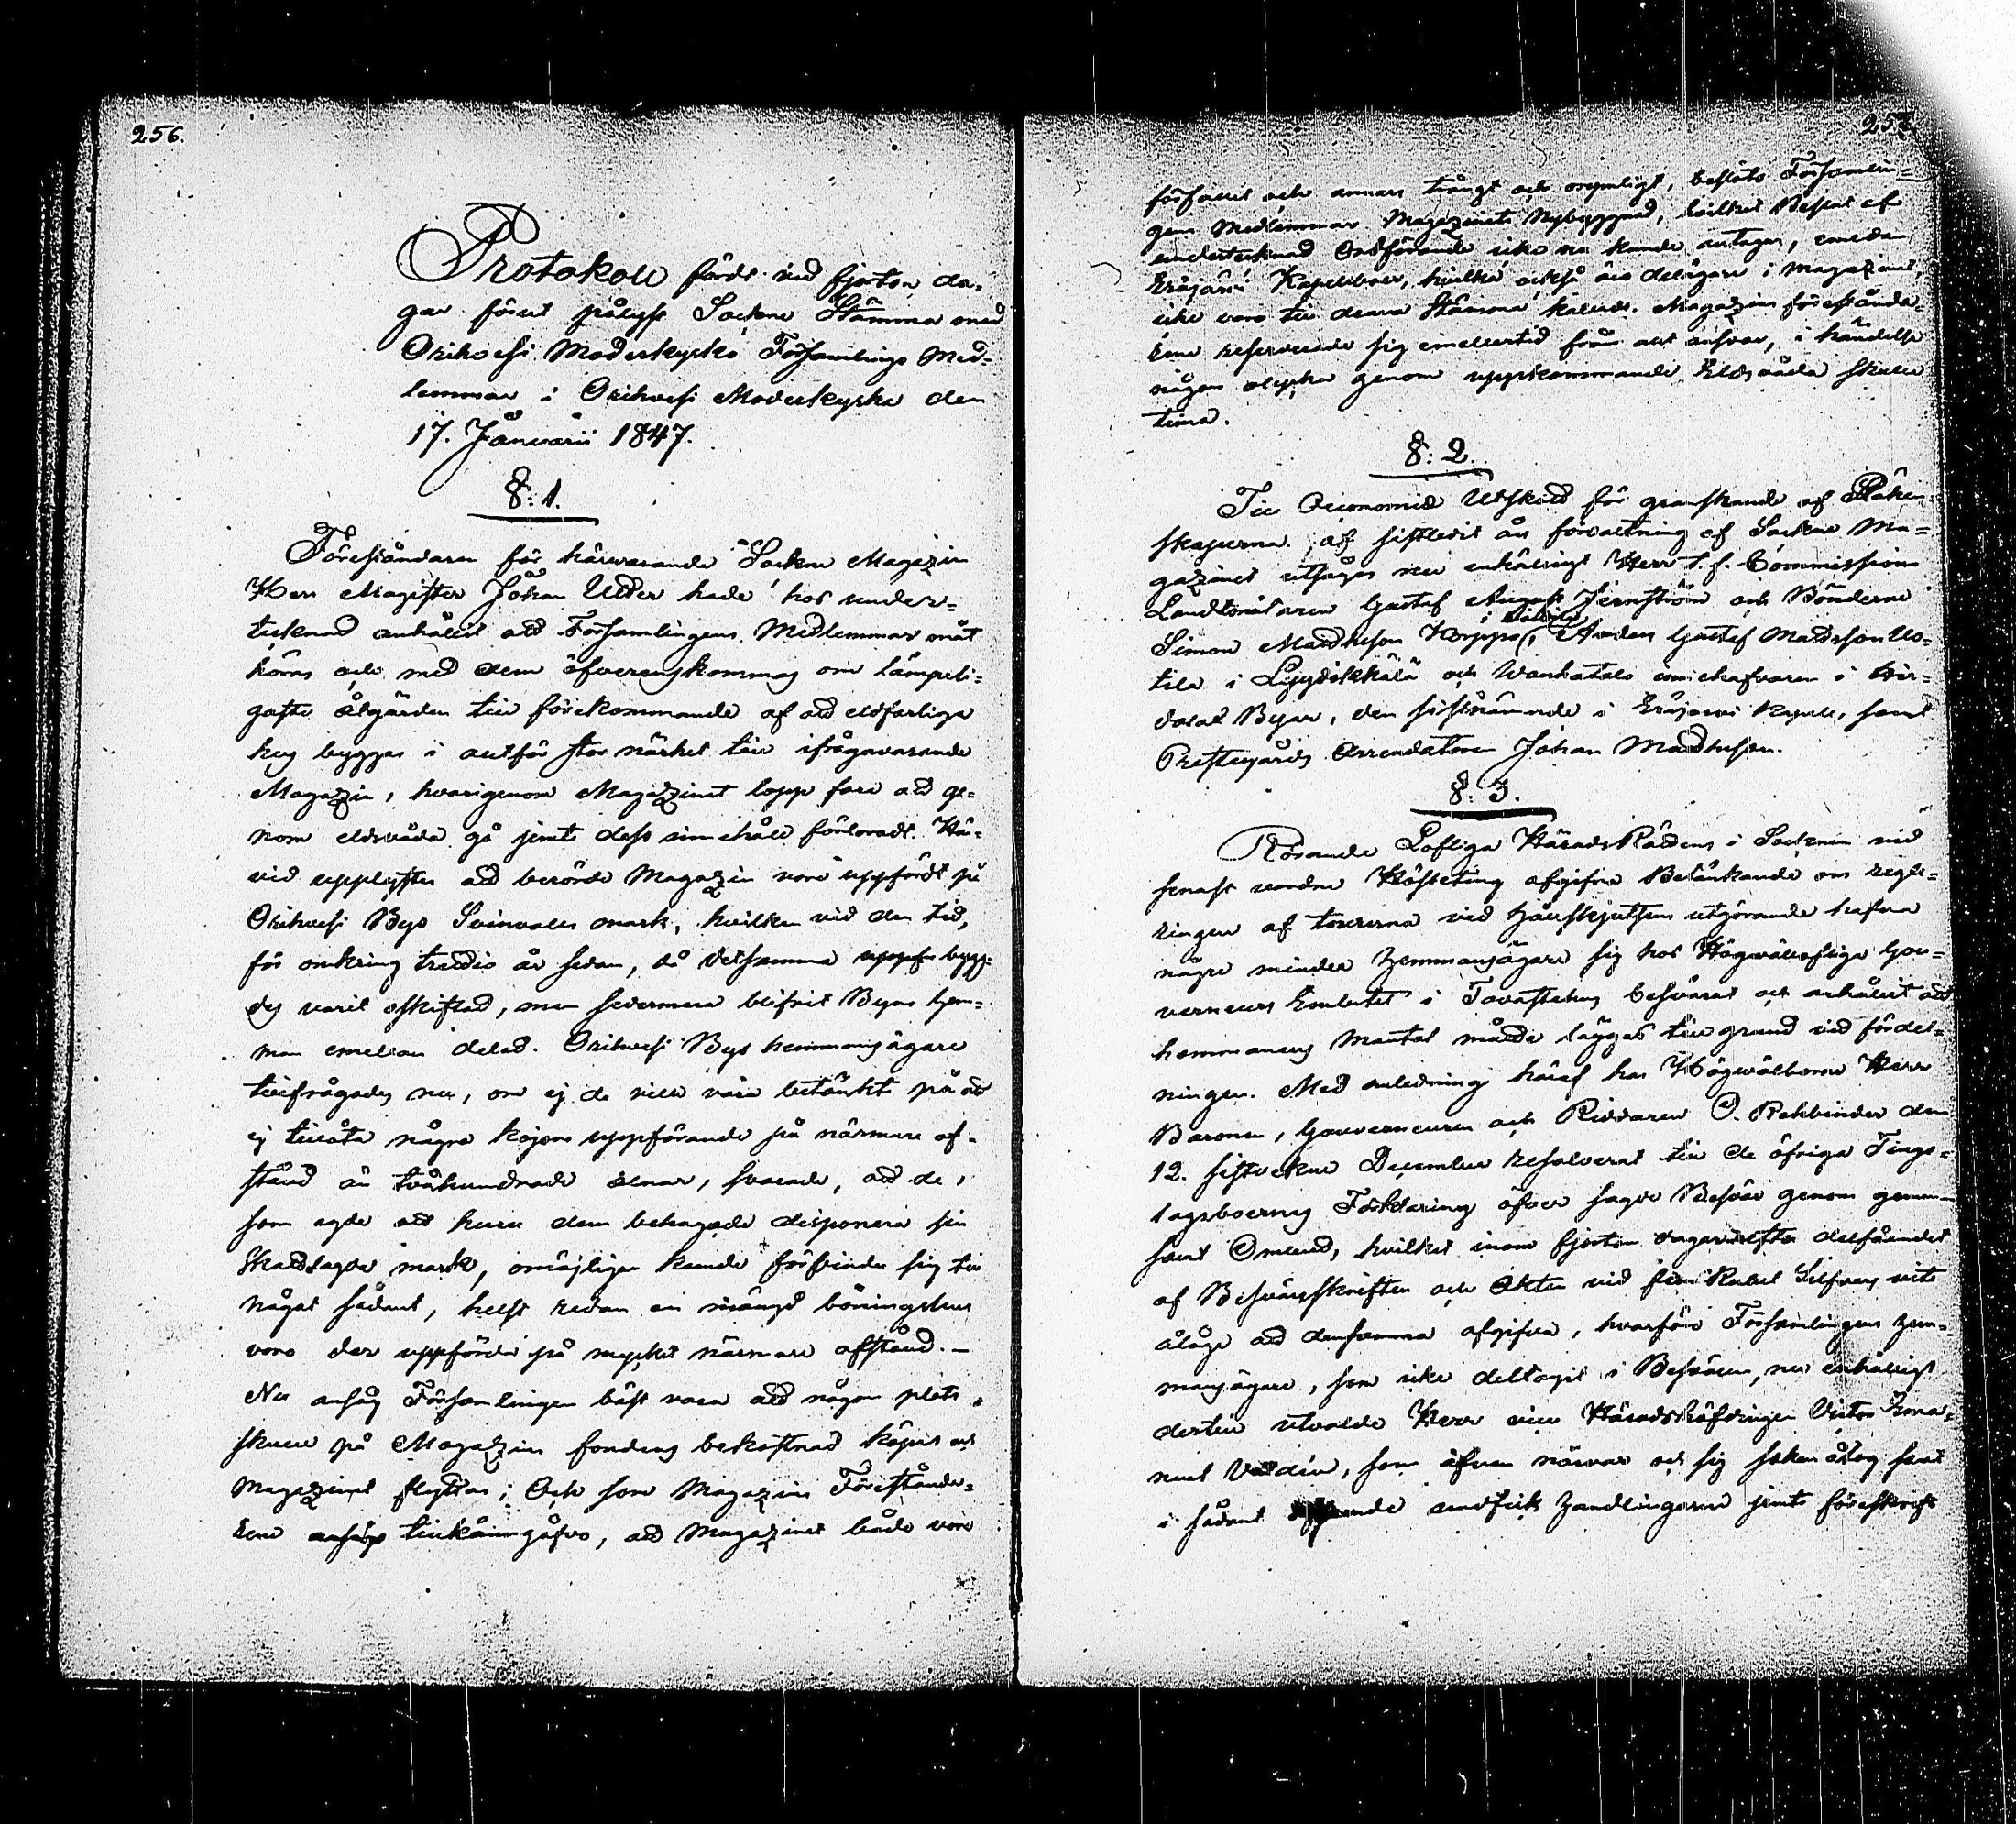 256.
Protokoll fördt vid fjorton da-
gar förut pålyst Sockne Stämma med
Orihvesi Moderkyrko Församlings Med-
lemmar i Orihvesi Moderkyrka den
17. Januarii 1847.
§: 1.
Föreståndaren för härvarande Sockne Magazin
Herr Magister Johan Uddér hade hos under-
tecknad anhållit att Församlingens Medlemmar måt
höras och med dem öfverenskommas om lämpeli-
gaste åtgärden till förekommande af att eldfarliga
hus byggas i alltför stor närhet till ifrågavarande
Magazin, hvarigenom Magazinet lopp fara att ge-
nom eldsvåda gå jemte dess innehåll förloradt. Här-
vid upplystes att berörde Magazin vore uppfördt på
Orihvesi Bys Svinvalls mark, hvilken vid den tid,
för omkring trettio år sedan, då detsamma uppbygg-
des varit oskiftad, men sedermera blifvit Byns hem-
man emellan delad. Orihvesi Bys hemmansägare
tillfrågades nu, om ej de ville vara betänkt på att
ej tillåta några kojors uppförande på närmare af-
stånd än tvåhundrade alnar, svarade, att de,
som egde att huru dem behagade disponera sin
Skattlagde mark, omöjligen kunde förbinda sig till
något sådant, helst redan en mängd boningshus
voro der uppförde på mycket närmare afstånd. -
Nu ansåg Församlingen bäst vara att någon plats
skulle på Magazins fondens bekostnad köpas och
Magazinet flyttas; Och som Magazins Förestånda-
rene tillkänna gåfvo, att Magazinet både vore
257.
förfallit och annars trångt och orymligt, beslöto Församlin-
gens Medlemmar Magazinets Nybyggnad, hvilket Beslut af
undertecknad Ordförande icke nu kunde antagas, emedan
Eräjärvi Kapellboer, hvilka också äro delägare i Magazinet,
icke voro till denna Stämma kallade. Magazins förestånda-
rene reserverade sig emellertid från allt ansvar, i händelse
någon olycka genom uppkommande Eldsvåda skulle
tima.
§: 2.
Till Oeconomie Utskott för granskande af Räken-
skaperna af sistledit års förvaltning af Sockne Ma-
gazinet utsågos nu enhälligt Herr t. f. Commissions
Landtmätaren Gustaf August Jernström och Bönderne
Simon Mattsson Koppo i , Anders Gustaf Mattsson Uo-
tila i Lyydikkälä och Wanhatalo innehafvaren i Hir-
Byar, den sistnämnde i Eräjärvi Kapell, samt
Prestegårds Arrendatoren Johan Mattsson.
§: 3.
Rörande Lofliga HäradsRättens i Socknen vid
senast vordne Hösteting afgifne Betänkande om regle-
ringen af turerna vid hållskjutsens utgörande hafva
några mindre hemmansägare sig hos Högvällofliga Gou-
verneurs Embetet i Tavastehus besvärat och anhållit att
hemmanens Mantal måtte läggas till grund vid fördel-
ningen. Med anledning häraf har Högvälborne Herr
Baronen, Gouverneuren och Riddaren O. Rehbinder den
12. sistvekne December resolverat till de öfriga Tings-
lagsboernes Förklaring öfver sagde Besvär genom gemen-
samt Ombud, hvilket inom fjorton dagar efter delfåendet
af Besvärsskriften och Akten vid fem Rubel Silfvers vite
ålåge att densamma afgifva, hvarföre Församlingens hem-
mansägare, som icke deltagit i Besvären, nu enhälligt
dertill utvalde Herr vice Häradshöfdingen Victor Ema-
nuel , som äfven närvar och sig saken åtog samt
i sådant afseende undfick handlingarne jemte föreskrift